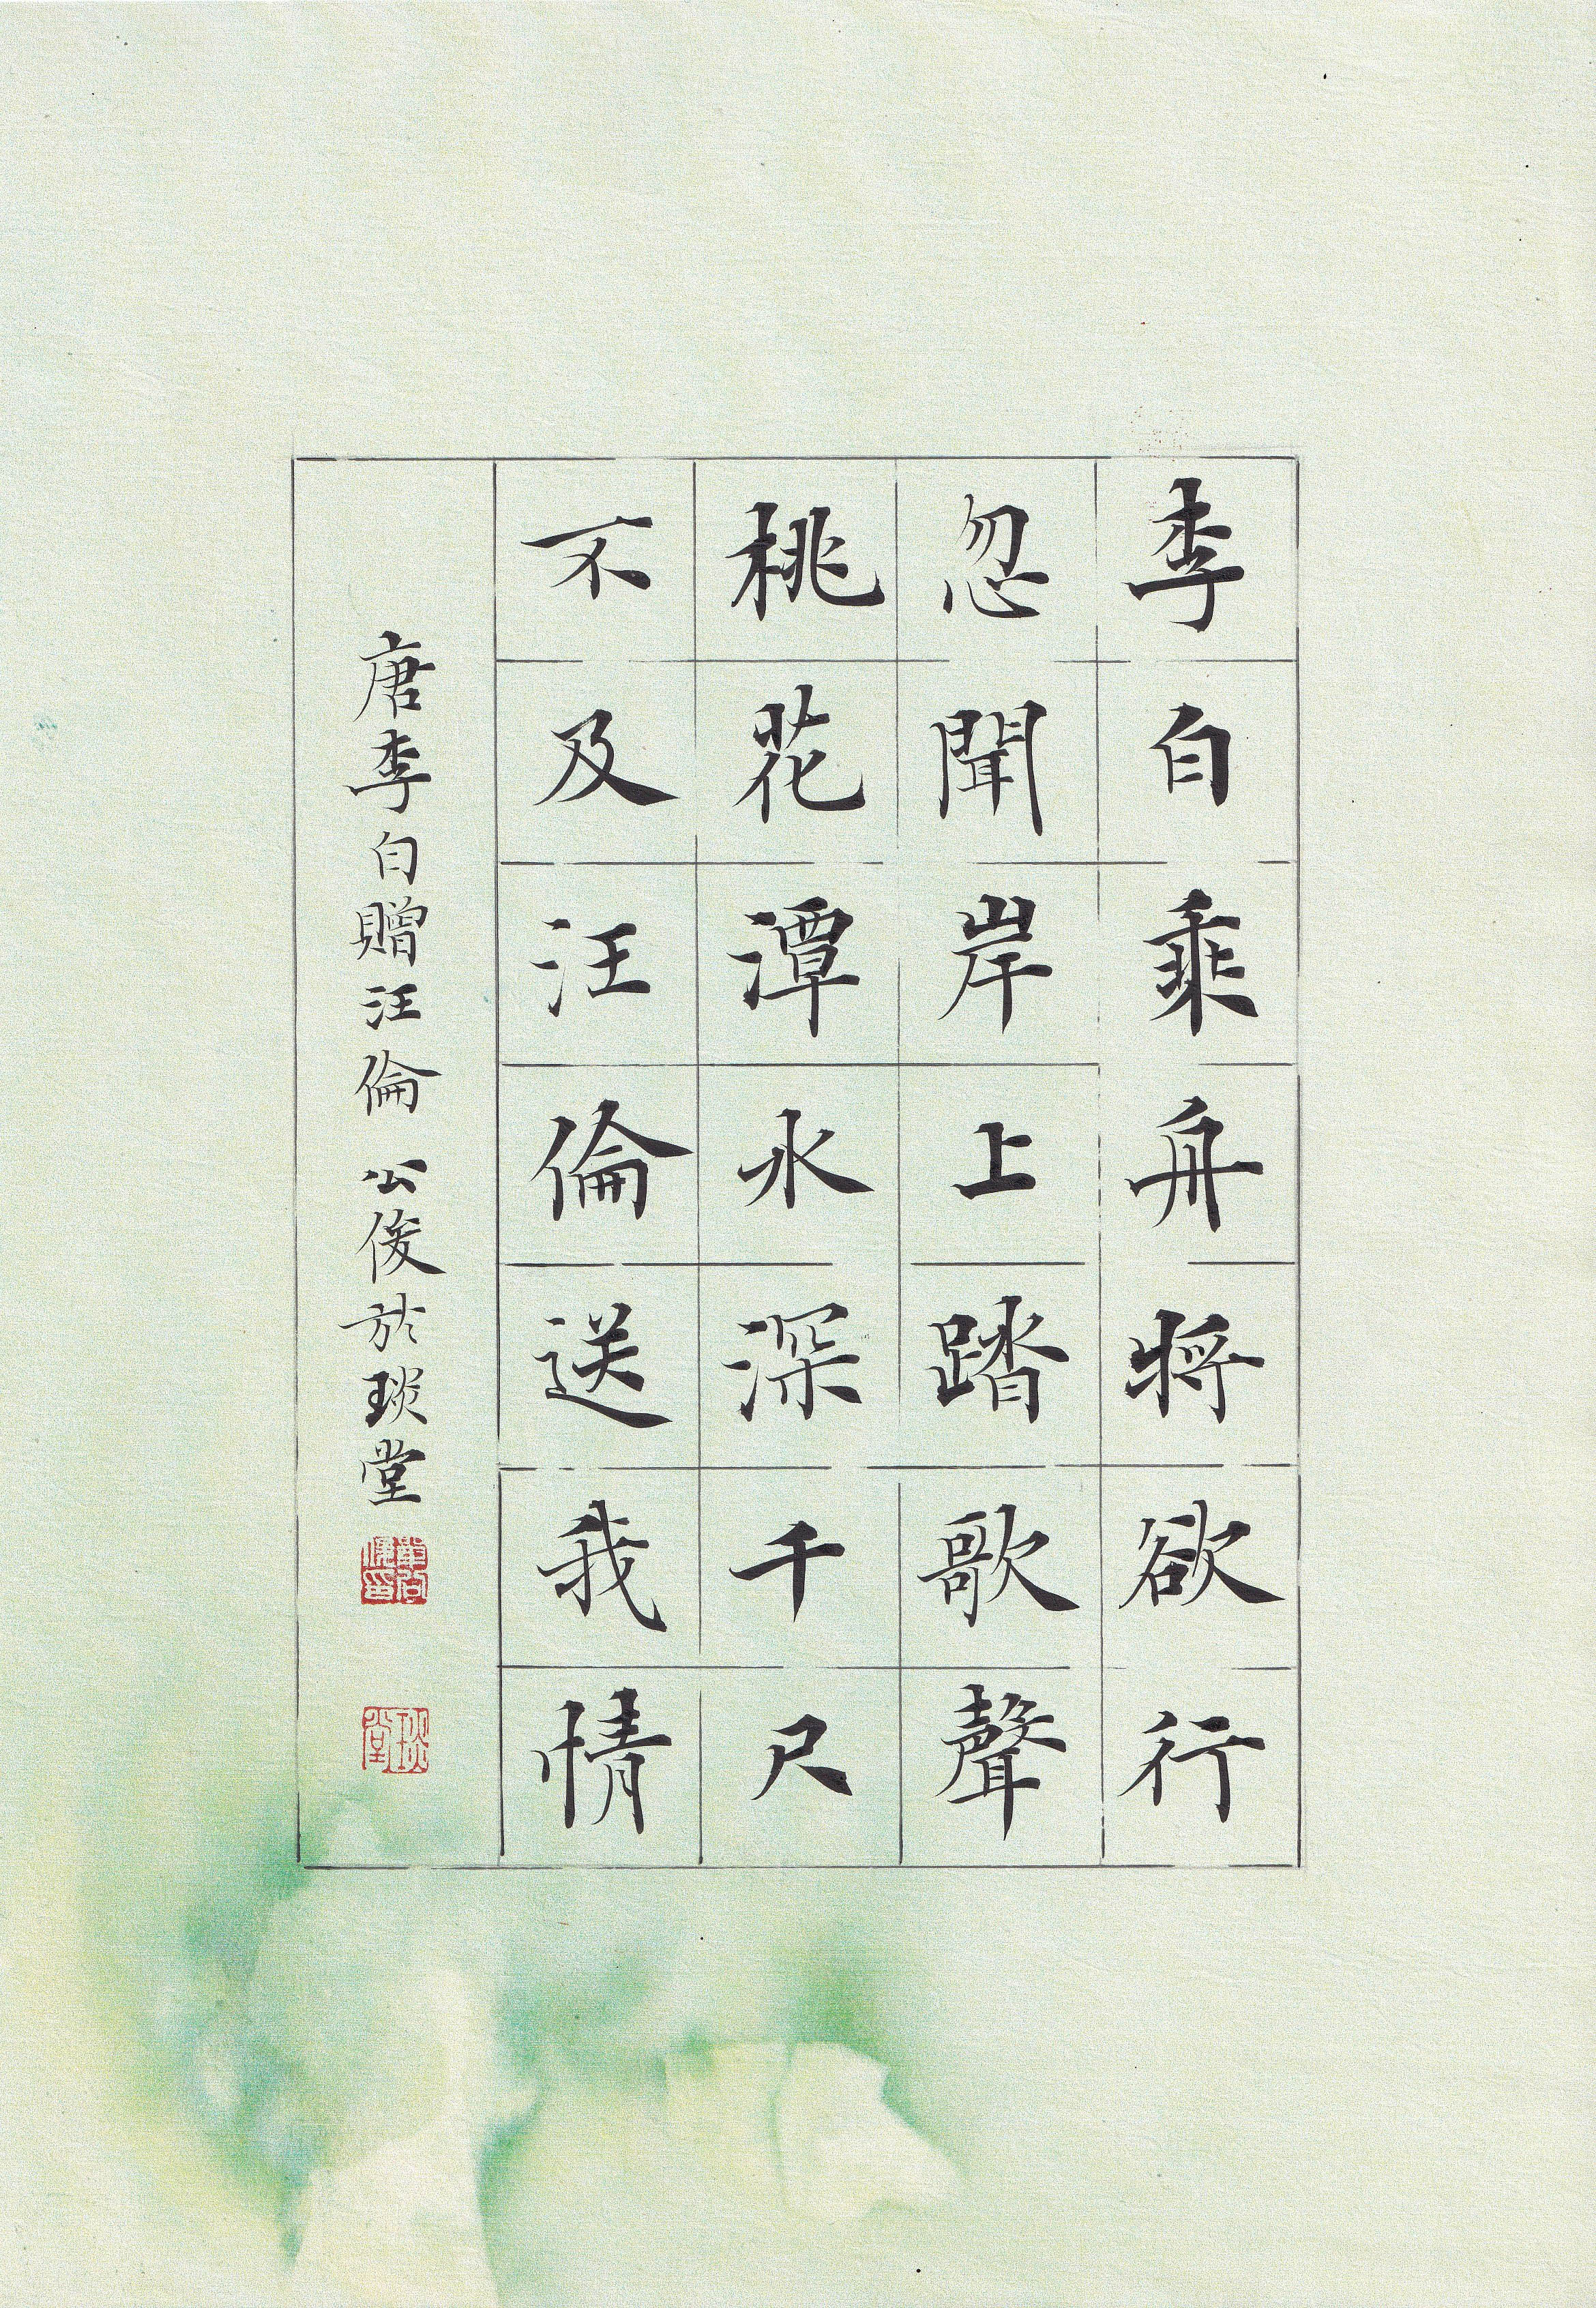 李白乘舟將欲行
忽聞岸上踏歌聲
桃花潭水深千尺
不及汪倫送我情
唐李白贈汪倫 公俊於琰堂
琰堂